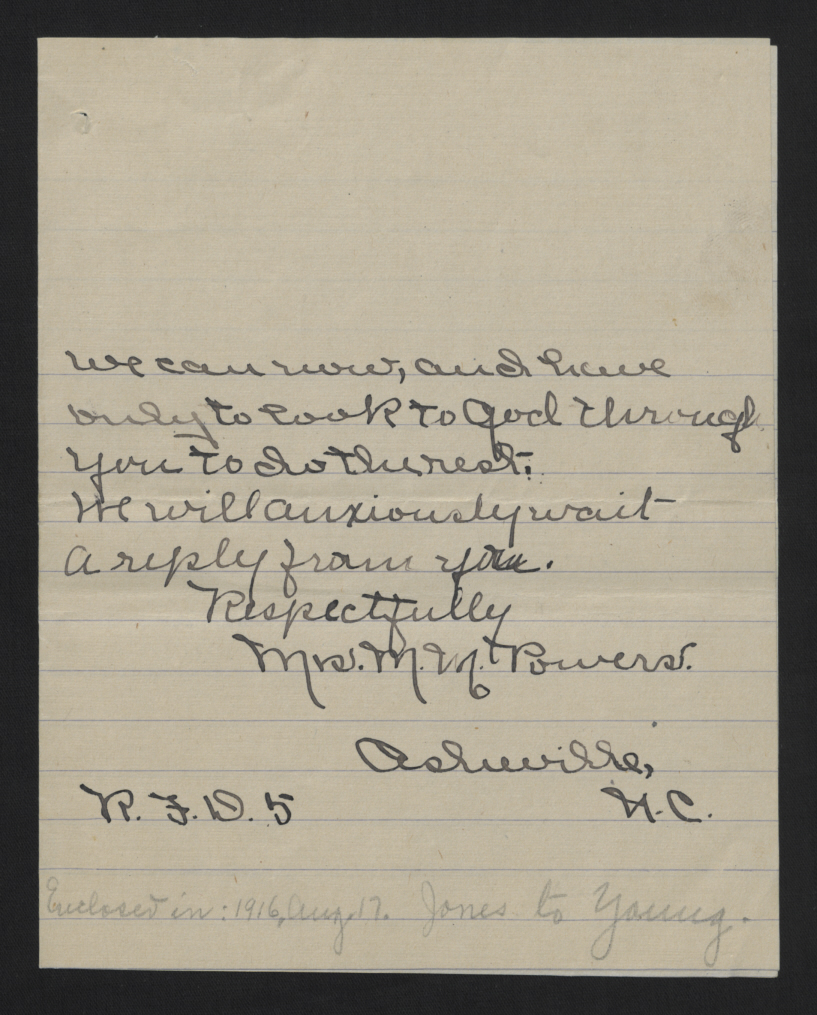 we can now, and have
only to look to God through
you to do the rest.
We will anxiously wait
a reply from you.
Respectfully
Mrs. M. M. Powers.
Asheville,
R. F. D. 5 N. C.
Enclosed in: 1916, Aug. 17. Jones to Young.